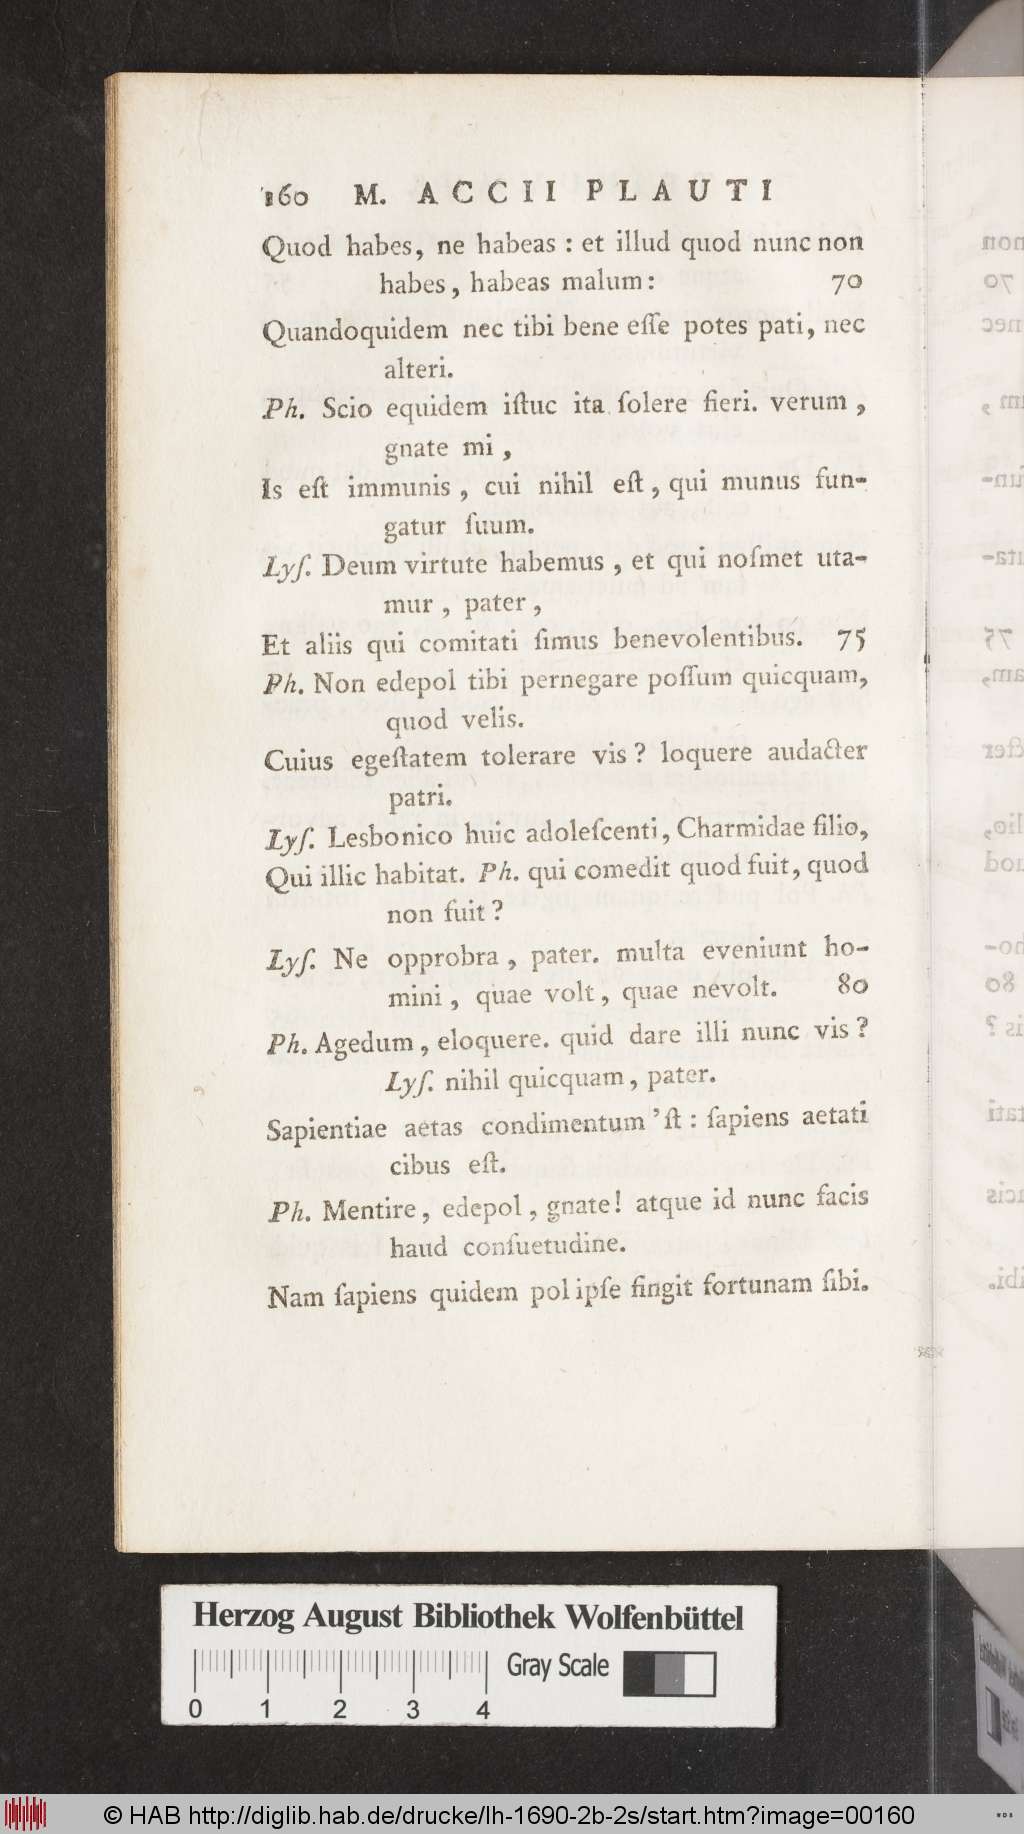 160 M. ACCII PLAUTI
Quod habes, ne habeas : et illud quod nunc non
habes, habeas malum: 70
Quandoquidem nec tibi bene eſſe potes pati, nec
alteri.
Ph. Scio equidem iſtuc ita ſolere fieri. verum,
gnate mi,
Is eſt immunis, cui nihil eſt, qui munus fun-
gatur ſuum.
Lyſ. Deum virtute habemus, et qui noſmet uta-
mur, pater,
Et aliis qui comitati ſimus benevolentibus. 75
Ph. Non edepol tibi pernegare poſſum quicquam,
quod velis.
Cuius egeſtatem tolerare vis? loquere audacter
patri.
Lyſ. Lesbonico huic adoleſcenti, Charmidae filio,
Qui illic habitat. Ph. qui comedit quod fuit, quod
non fuit?
Lyſ. Ne opprobra, pater. multa eveniunt ho-
mini, quae volt, quae nevolt. 80
Ph. Agedum, eloquere. quid dare illi nunc vis?
Lyſ. nihil quicquam, pater.
Sapientiae aetas condimentum 'ſt : ſapiens aetati
cibus eſt.
Ph. Mentire, edepol, gnate! atque id nunc facis
haud conſuetudine.
Nam ſapiens quidem pol ipſe fingit fortunam ſibi.
Herzog August Bibliothek Wolfenbüttel
Gray Scale
0 1 2 3 4
© HAB http://diglib.hab.de/drucke/lh-1690-2b-2s/start.htm?image=00160